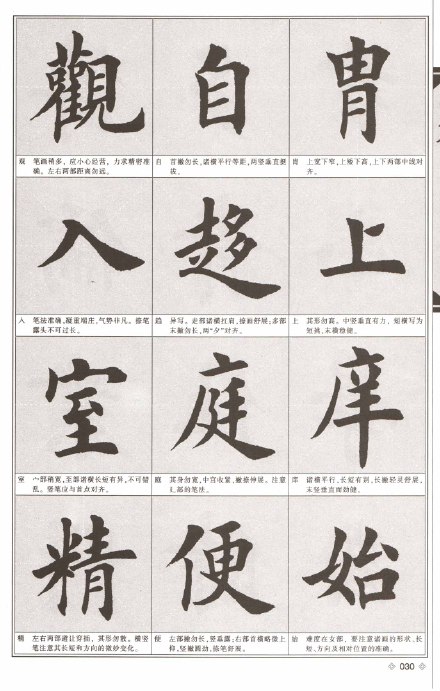 觀 自 胄
观 笔画稍多,应小心经营。力求精密准
确。左右两部距离勿远。
自 首撇勿长,诸横平行等距,两竖垂直挺
拔。
胄 上宽下窄,上矮下高,上下两部中线对
齐。
入 趍 上
入 笔法准确,凝重端庄,气势非凡。捺笔
露头不可过长。
趋 异写。走部诸横扛肩,捺画舒展;多部
末撇勿长,两“夕”对齐。
上 其形勿高。中竖垂直有力,短横写为
短挑,末横稳健。
室 庭 庠
室 宀部稍宽,至部诸横长短有异,不可错
乱。竖笔应与首点对齐。
庭 其身勿宽,中宫收紧,撇捺伸展。注意
廴部的笔法。
庠 诸横平行,长短有别,长撇轻灵舒展,
末竖垂直而劲健。
精 便 始
精 左右两部避让穿插,其形勿散。横竖
笔注意其长短和方向的微妙变化。
便 左部撇勿长,竖垂露;右部首横略微上
仰,竖撇圆劲,捺笔舒展。
始 难度在女部,要注意诸画的形状、长
短、方向及相对位置的准确。
030